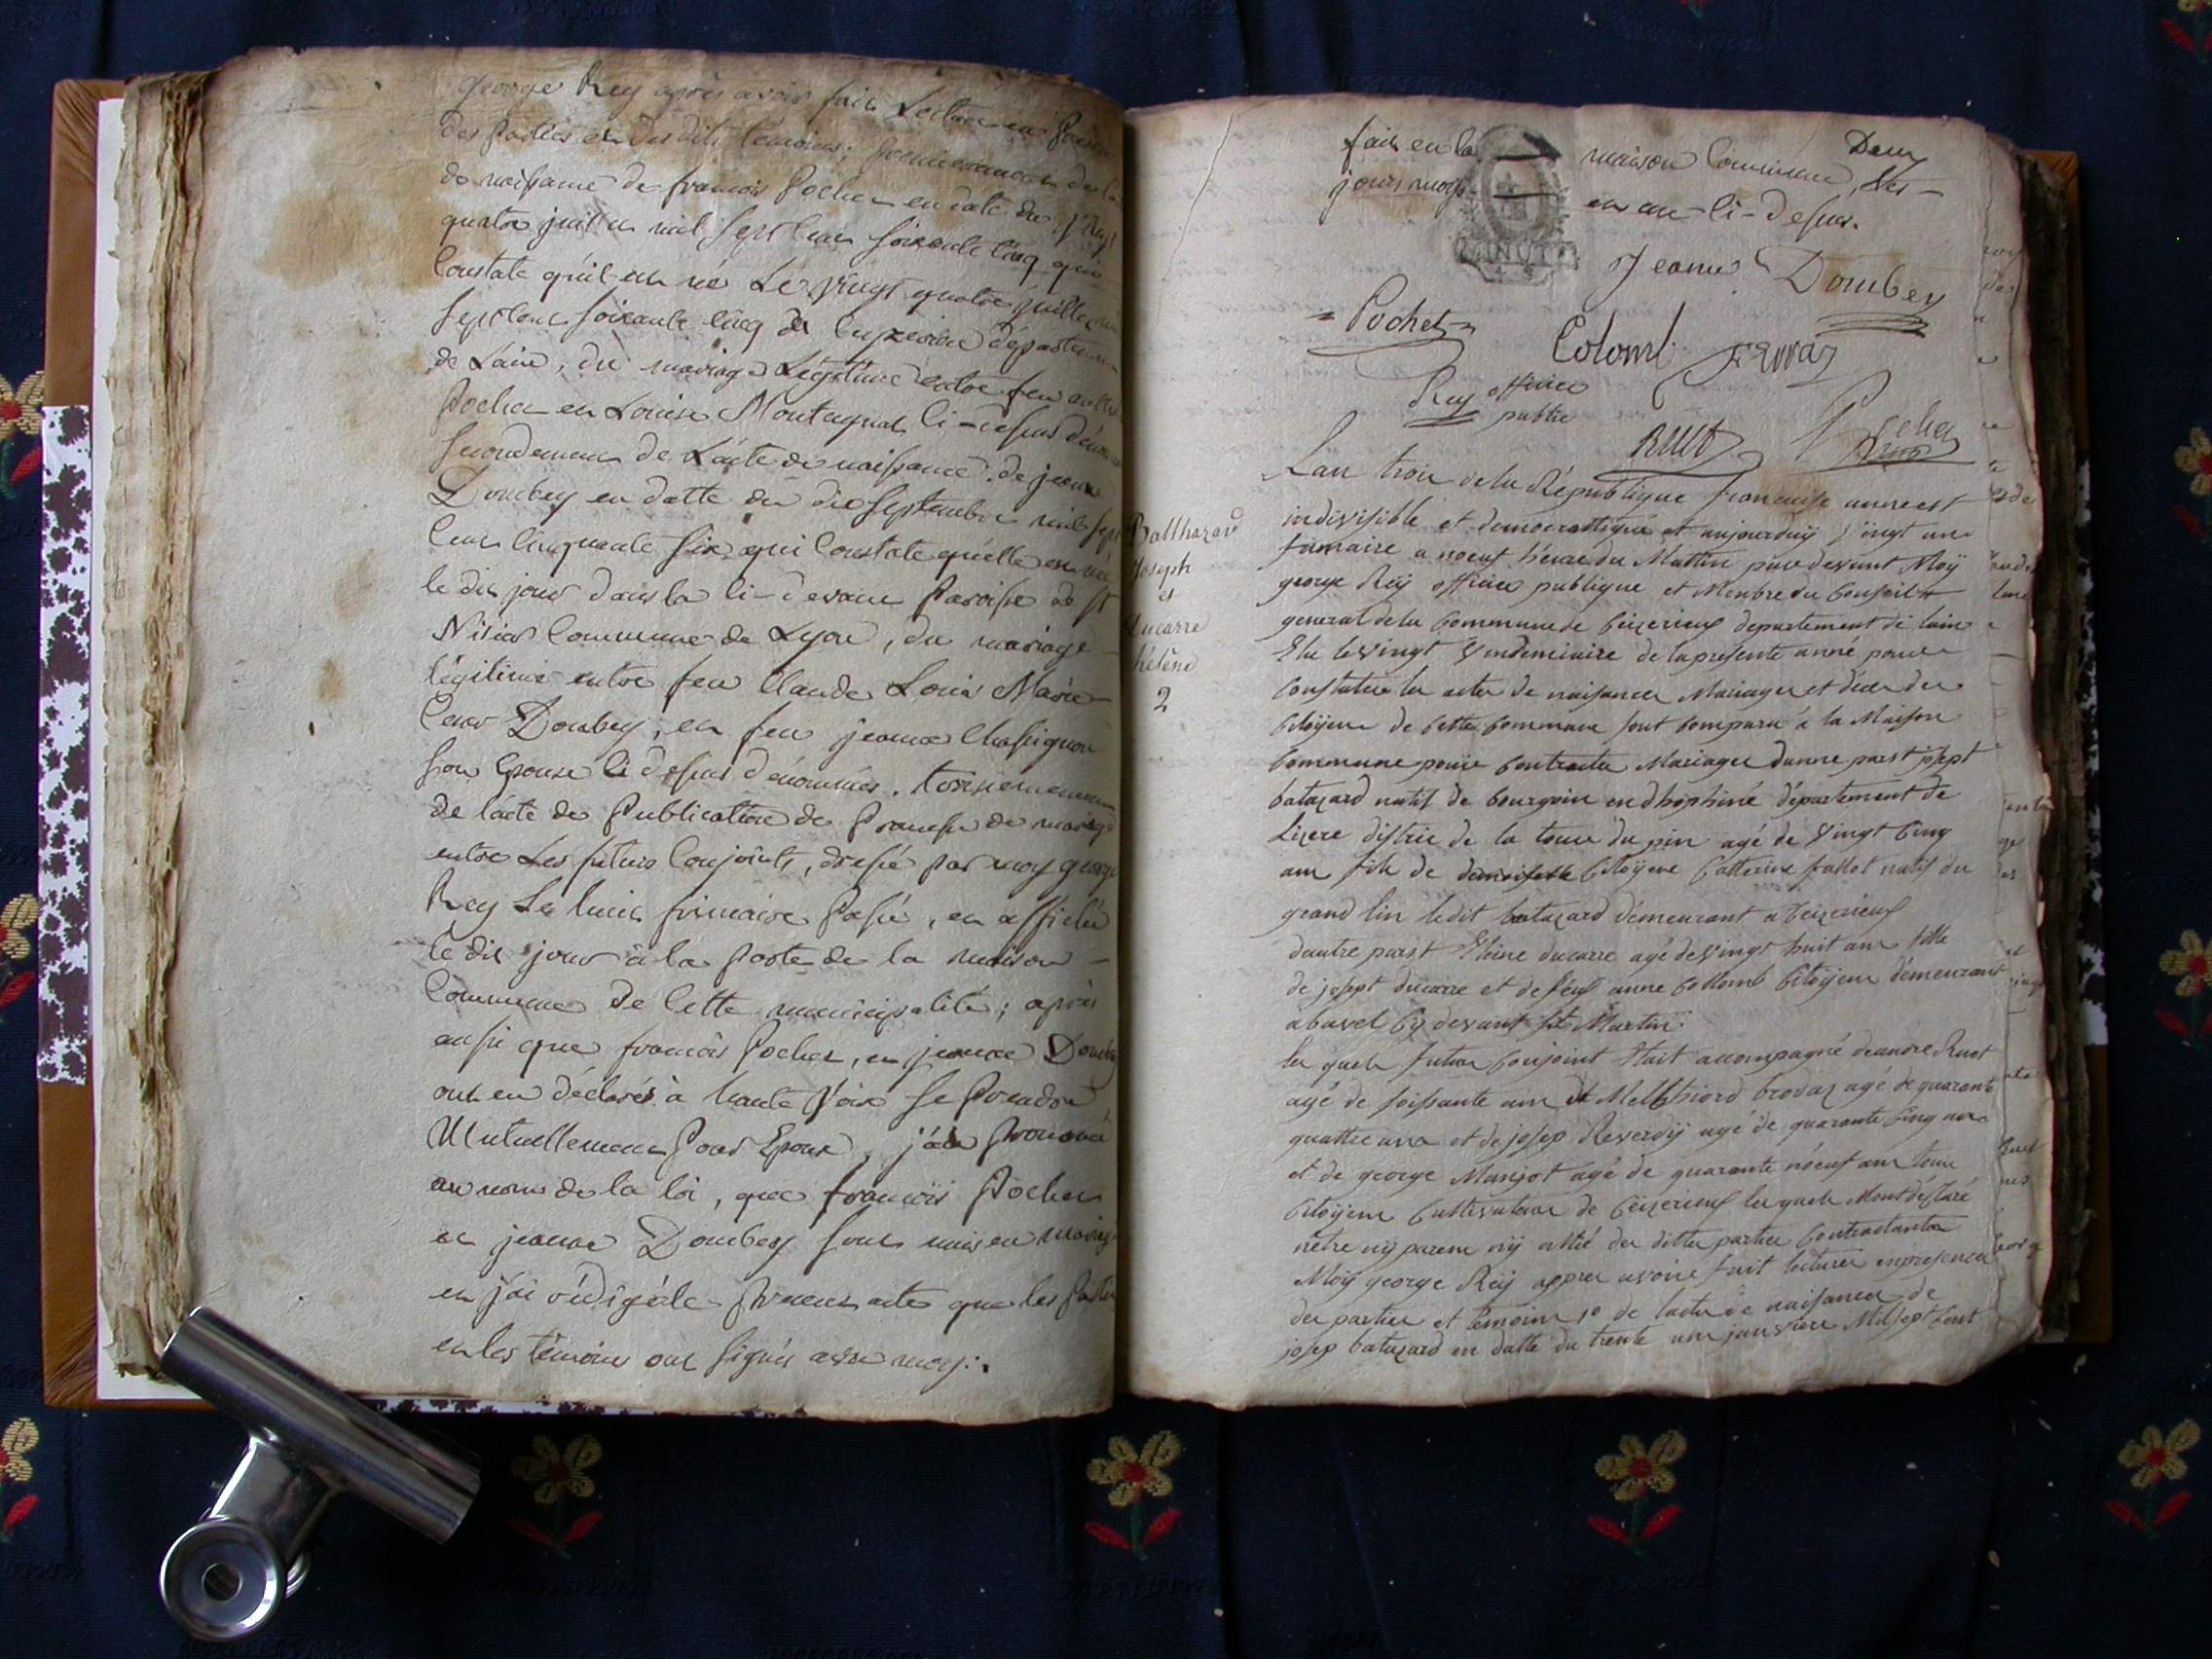 george Rey après avoir fait Lecture en présence
des parties et des dits témoins; premierement de
de naissance de francois Pochet en date du vingt
quatre juillet mil sept cent soixante cinq qui
Constate qu'il est né Le vingt quatre juillet mil
sept cent soixante cinq de département
de Lain, du mariage Légitime entre feu
Pochet et Louise Montagnat ci-dessus
secondement de L'acte de naissance de jeanne
Dombey en datte du dix septembre mil sept
cent cinquante six, qui Constate qu'elle est née
le dit jour dans la ci-devant Paroisse de St
Nisier Commune de Lyon, du mariage
légitime entre feu Claude Louis Marie
Dombey, et feu jeanne Chassignon
son Epouse ci dessus dénommés. troisiemement
de lacte de Publication de Promesse de mariage
entre Les futurs Conjoints, dressé par moy george
Rey Le huit frimaire Passé, et affiché
le dit jour à la Porte de la maison
Commune de Cette municipalité; après
aussi que francois Pochet, et jeanne Dombey
ont eu déclarés à haute Voix se Prendre
Mutuellement Pour Epoux, j'ai Prononcé
au nom de la loi, que francois Pochet
et jeanne Dombey sont unis en mariage
et j'ai rédigé le présent acte que les Parties
et les témoins ont signés avec moy:.
Deux
fait en la maison Commune, Les
jours mois et an ci-dessus.
MINUT
Jeanne Dombey
Pochet
Colomb ferraz
Rey officier
public
Ruet Pochet
Balthazard
Joseph
et
Ducarre
hélène
2
Lan troi de la République francaise unne est
indivisible et democrattique et aujourduij vingt un
frimaire a noeuf heure du Mattin par devant Moÿ
george Reÿ officier publique et Menbre du Conseil
general de la Commune de Ceizerieuf departement de lain
Elu le vingt Vindemiaire de la presente anné pour
Constater les acter de naisancer Mariager et deces des
Citoÿens de Cette Commune sont Comparu à la Maison
Commune pour Contracter Mariager dunne part josept
batazard natif de bourgoin en dhophiné département de
Lizere distric de la tour du pin agé de vingt Cinq
an fils de Citoÿene Catterine fallot natif du
grand lin ledit batazard démeurant a Ceizerieuf
dautre part Eleine ducarre agé de vingt huit ans fille
de josept ducarre et de feuf anne Collomb Citoÿens démeurant
a bavel Cy devant St Martin:
les quels futur Conjoint Etait accompagné deandre Ruet
agé de soissante ans et Melchiord brovaz agé de quarante
quattre ans et de josep Reverdÿ agé de quarante Cinq ans
et de george Munjot agé de quarante noeuf ans tous
Citoÿens Cultivateur de Ceizerieuf les quels Mont déclaré
nétre nÿ parent nÿ allié des ditter partier Contractanter
Moÿ george Reÿ apprer avoire fait lecturer en presence
des partier et témoins 1º de lacter de naisancer de
josep batazard en datte du trente un janvier Mil sept Cent